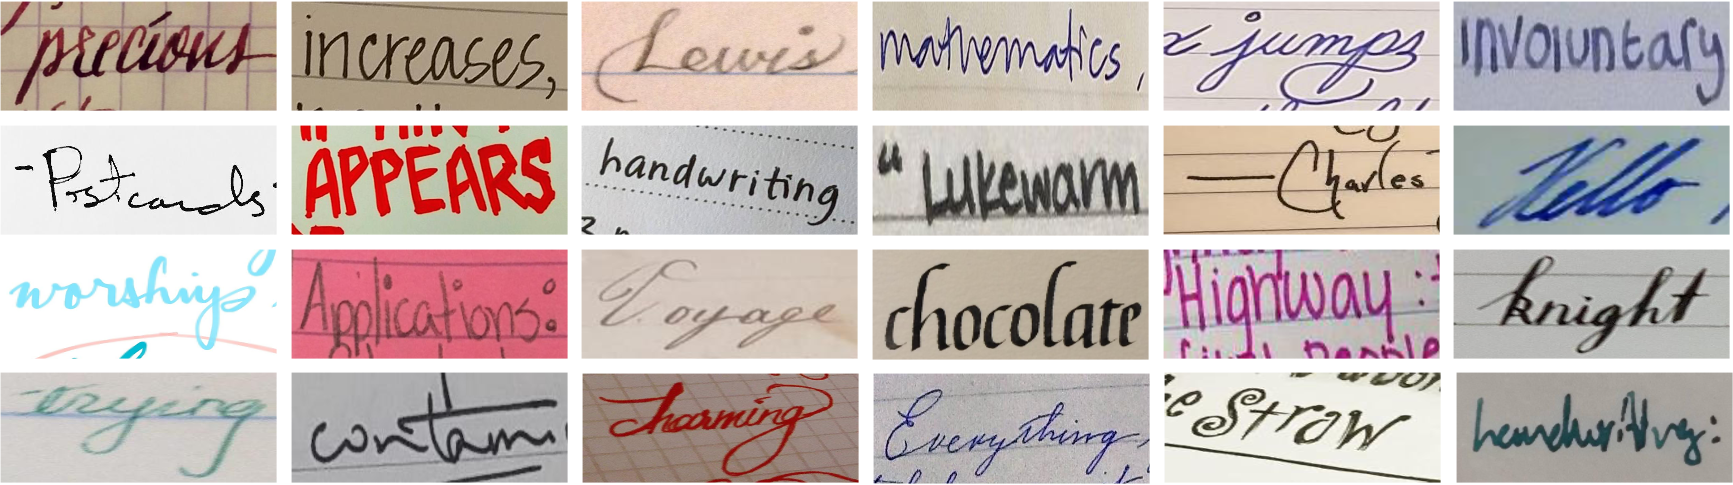 precious increases, Lewis mathematics, jumps involuntary
-Postcards APPEARS handwriting "Lukewarm — Charles Hello,
worship Applications: Voyage chocolate Highway: knight
trying contami Charming Everything, Straw handwriting: